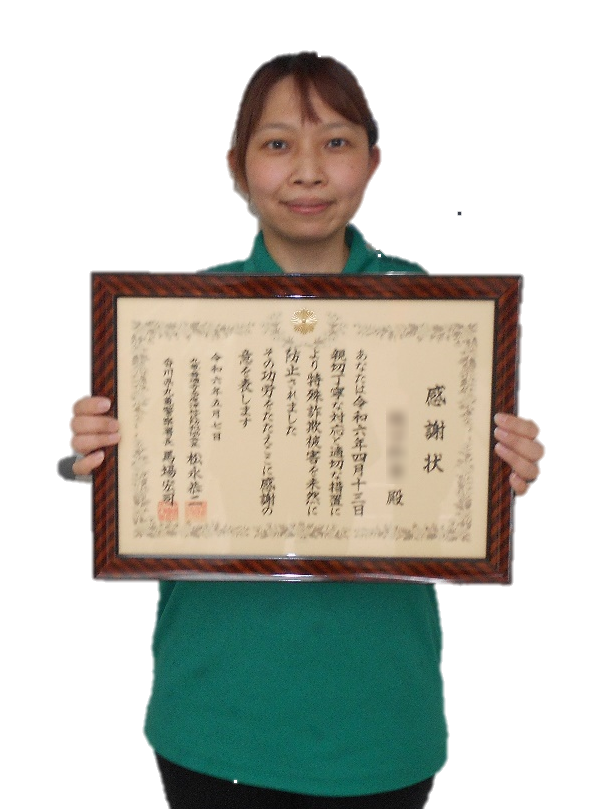 感謝状
殿
あなたは令和六年四月十三日
親切丁寧な対応と適切な措置に
より特殊詐欺被害を未然に
防止されました
その功労をたたえここに感謝の
意を表します
令和六年五月七日
松永恭二
香川県丸亀警察署長 馬場宏司